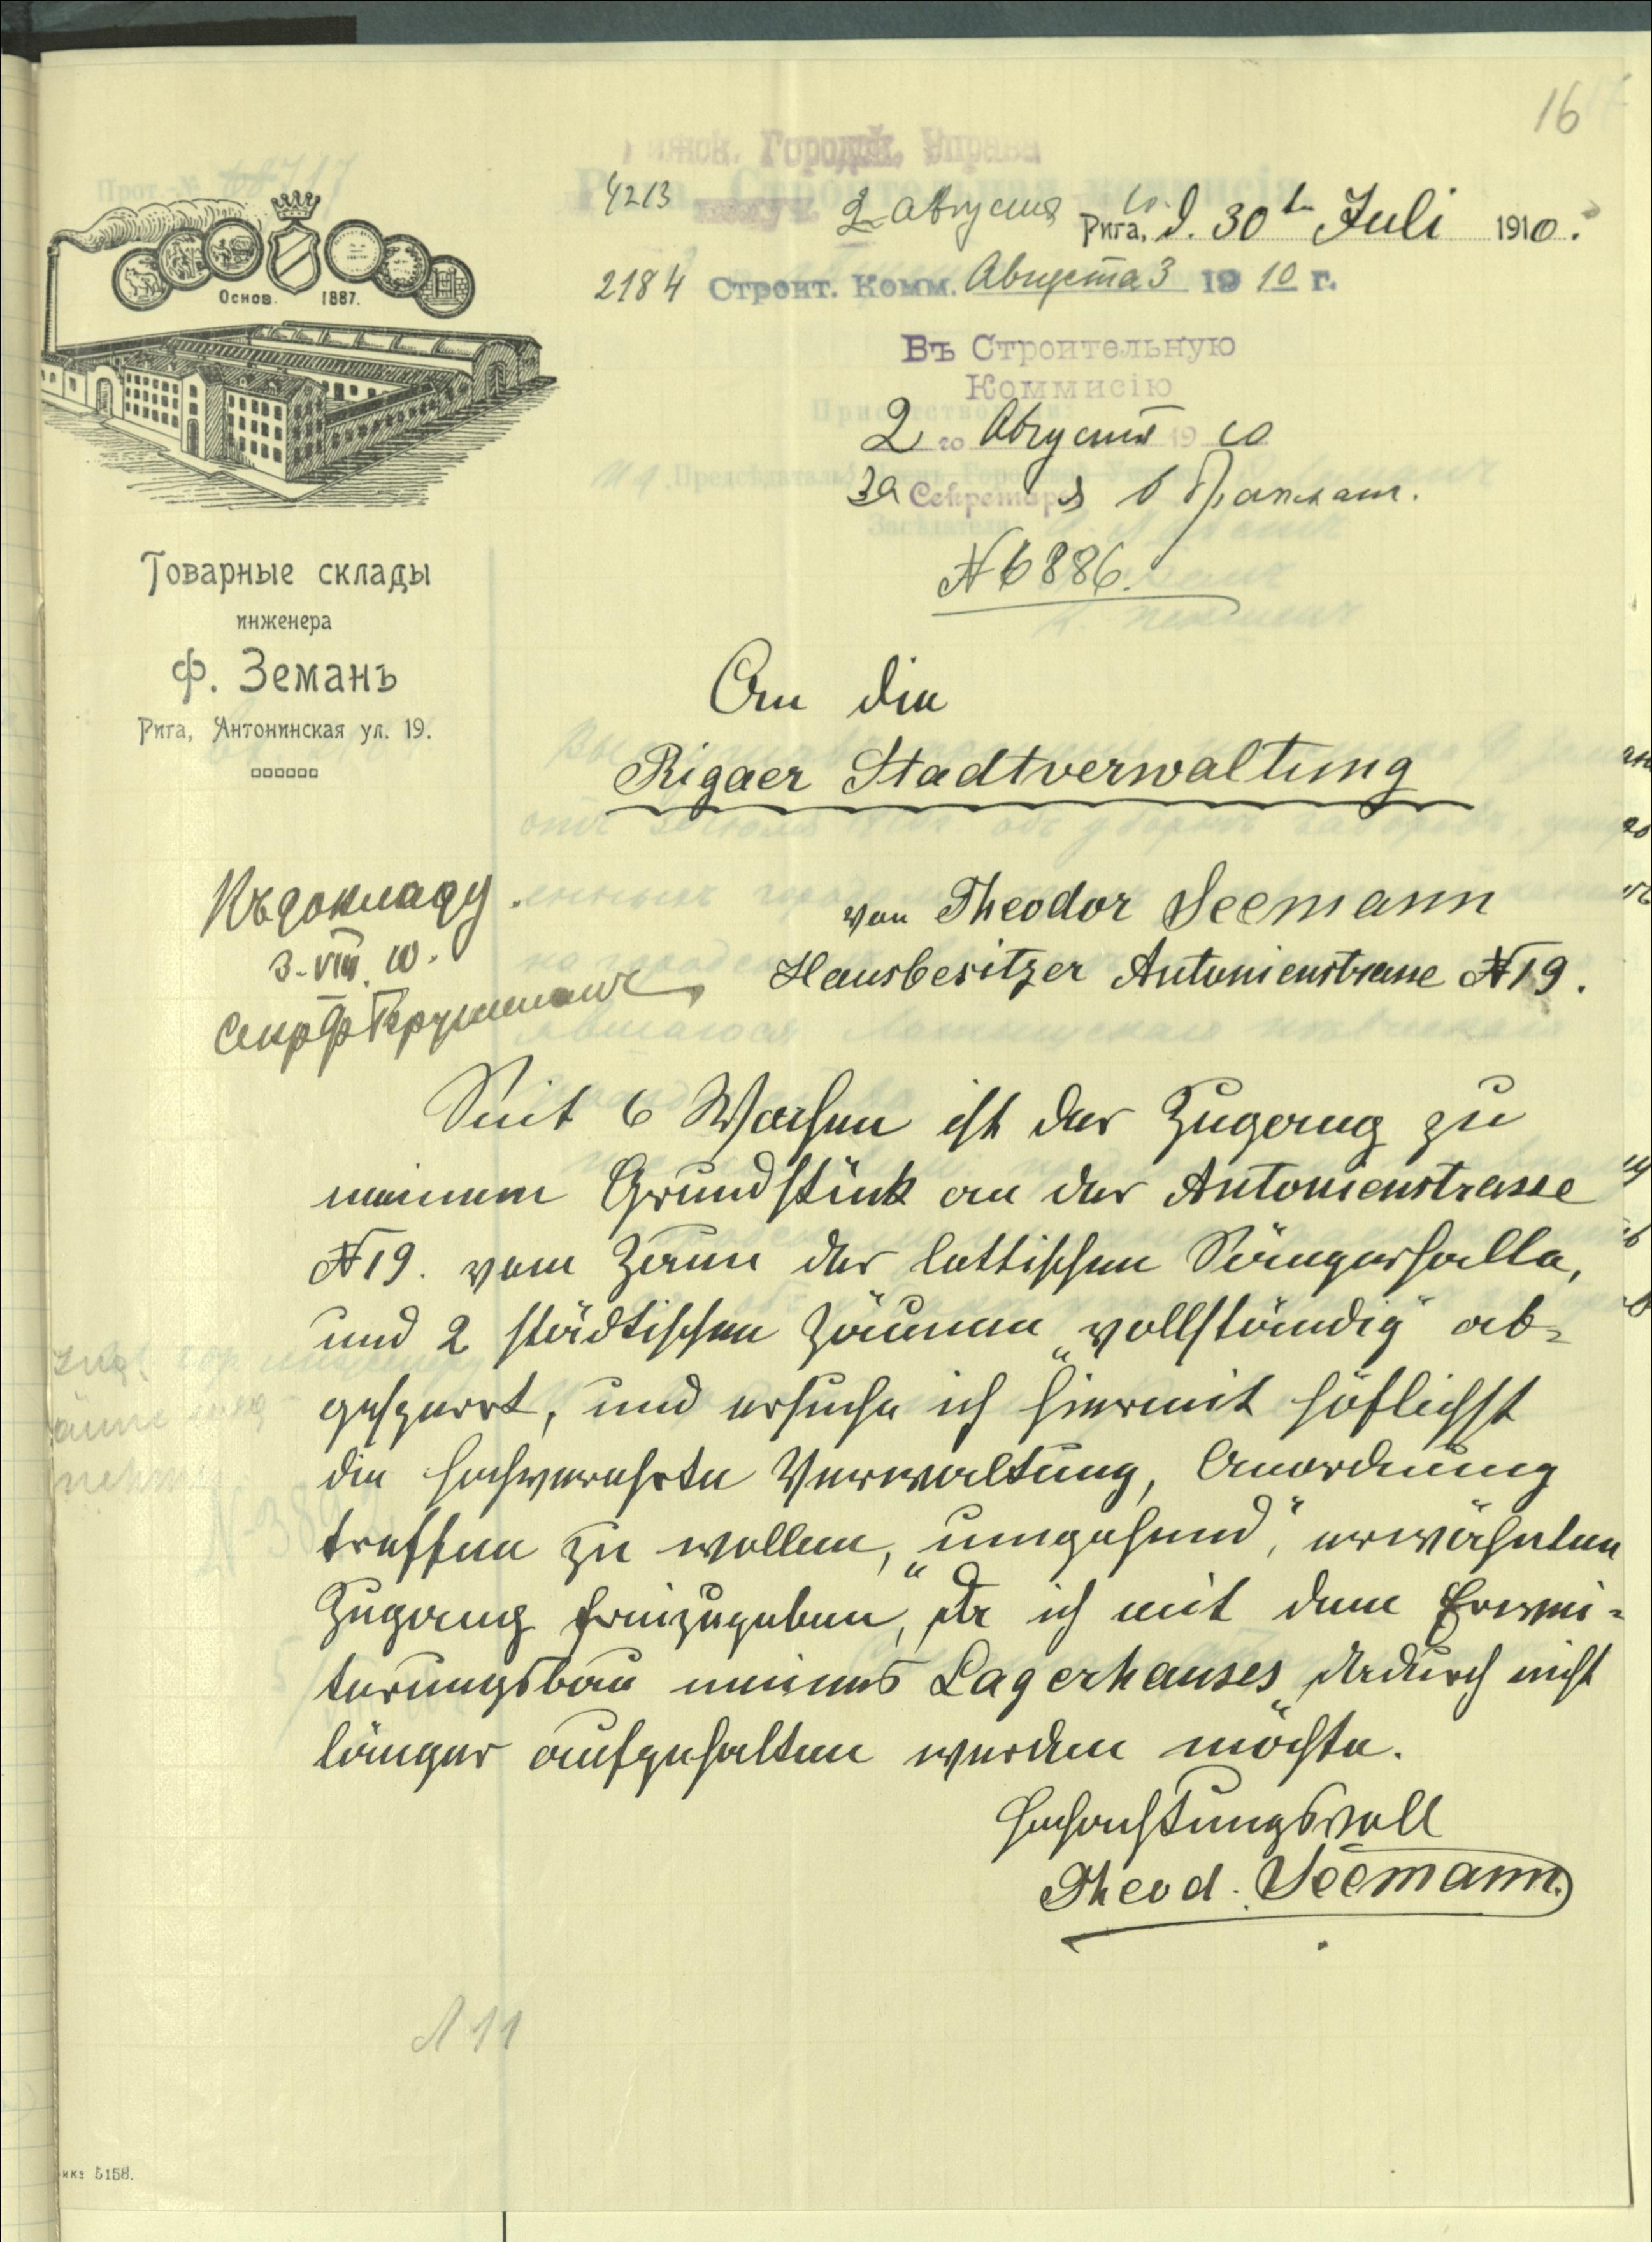 16
Рижск. Городск. Управа
4213
2 Августа 10. Рига, d. 30t Juli 1910.
2184 Строит. Комм. Августа 3 1910 г.
Основ. 1887.
Въ Строительную
Коммисію
2 го Августа 19 10
За Секретаря
№ 6886.
Товарные склады
инженера
Ф. Земанъ
Рига, Антонинская ул. 19.
An die
Rigaer Stadtverwaltung
Къ докладу.
3-VIII 10.
Секр
von Theodor Seemann
Hausbesitzer Antonienstrasse № 19.
Seit 6 Wochen ist der Zugang zu
meinem Grundstück an der Antonienstrasse
№ 19. vom Zaun der lettischen Sängerhalle,
und 2 städtischen Zäunen „vollständig" ab-
gesperrt, und ersuche ich hiermit höflichst
die hochverehrte Verwaltung, Anordnung
treffen zu wollen, „umgehend", erwähnten
Zugang freizugeben, da ich mit dem Erwei-
terungsbau meines Lagerhauses dadurch nicht
länger aufgehalten werden möchte.
Hochachtungsvoll
Theod. Seemann.
5158.